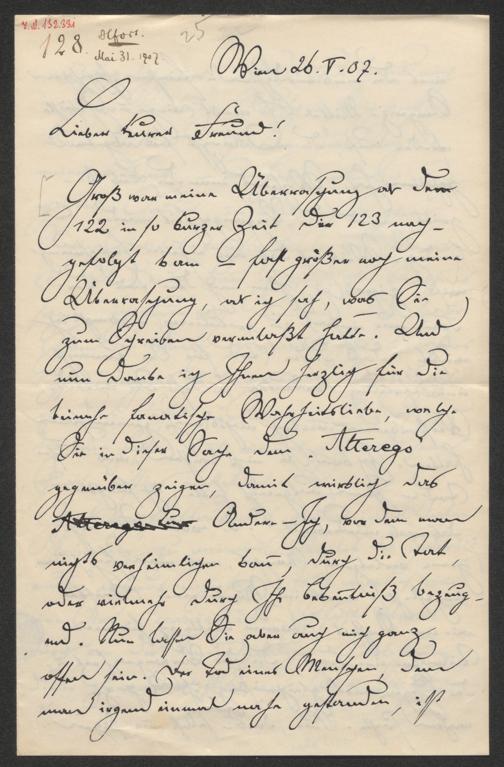 128.
Mai 31. 1907
25
Wien 26. V. 07.
Lieber teurer Freund!
Groß war meine Überraschung als dem
122 in so kurzer Zeit der 123 nach-
gefolgt kam — fast größer noch meine
Überraschung, als ich sah, was Sie
zum Schreiben veranlaßt hatte. Und
nun danke ich Ihnen herzlich für die
beinahe fanatische Wahrheitsliebe, welche
Sie in dieser Sache dem "Alterego"
gegenüber zeigen, damit wirklich das
Andere-Ich, vor dem man
nichts verheimlichen kann, durch die Tat,
oder vielmehr durch Ihr Bekenntniß bezeug-
end. Nun lassen Sie aber auch mich ganz
offen sein. Der Tod eines Menschen, dem
man irgend einmal nahe gestanden, ist